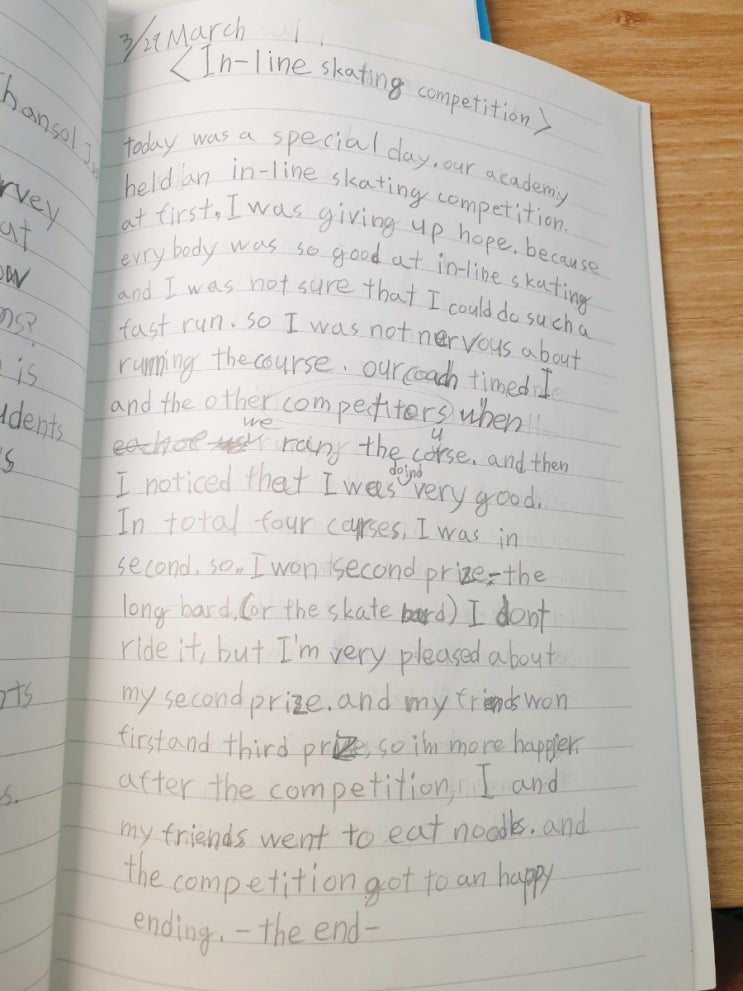 hansol
rvey
at
ow
ns?
is
udents
's
nts
s.
3/29 March sut
<In-line skating competition>
today was a special day. our academy
held an in-line skating competition.
at first, I was giving up hope. because
evrybody was so good at in-line skating
and I was not sure that I could do such a
fast run. so I was not nervous about
running the course. our coach timed I
and the other competiters when
we
rang the corse. and then
u
I noticed that I was very good.
doind
In total four carses, I was in
second. so.. I won second prize-the
long bard. (or the skate bard) I dont
ride it, but I'm very pleased about
my second prize. and my friends won
first and third prize, so i'm more happier.
after the competition, I and
my friends went to eat noodles. and
the competition got to an happy
ending. - the end -